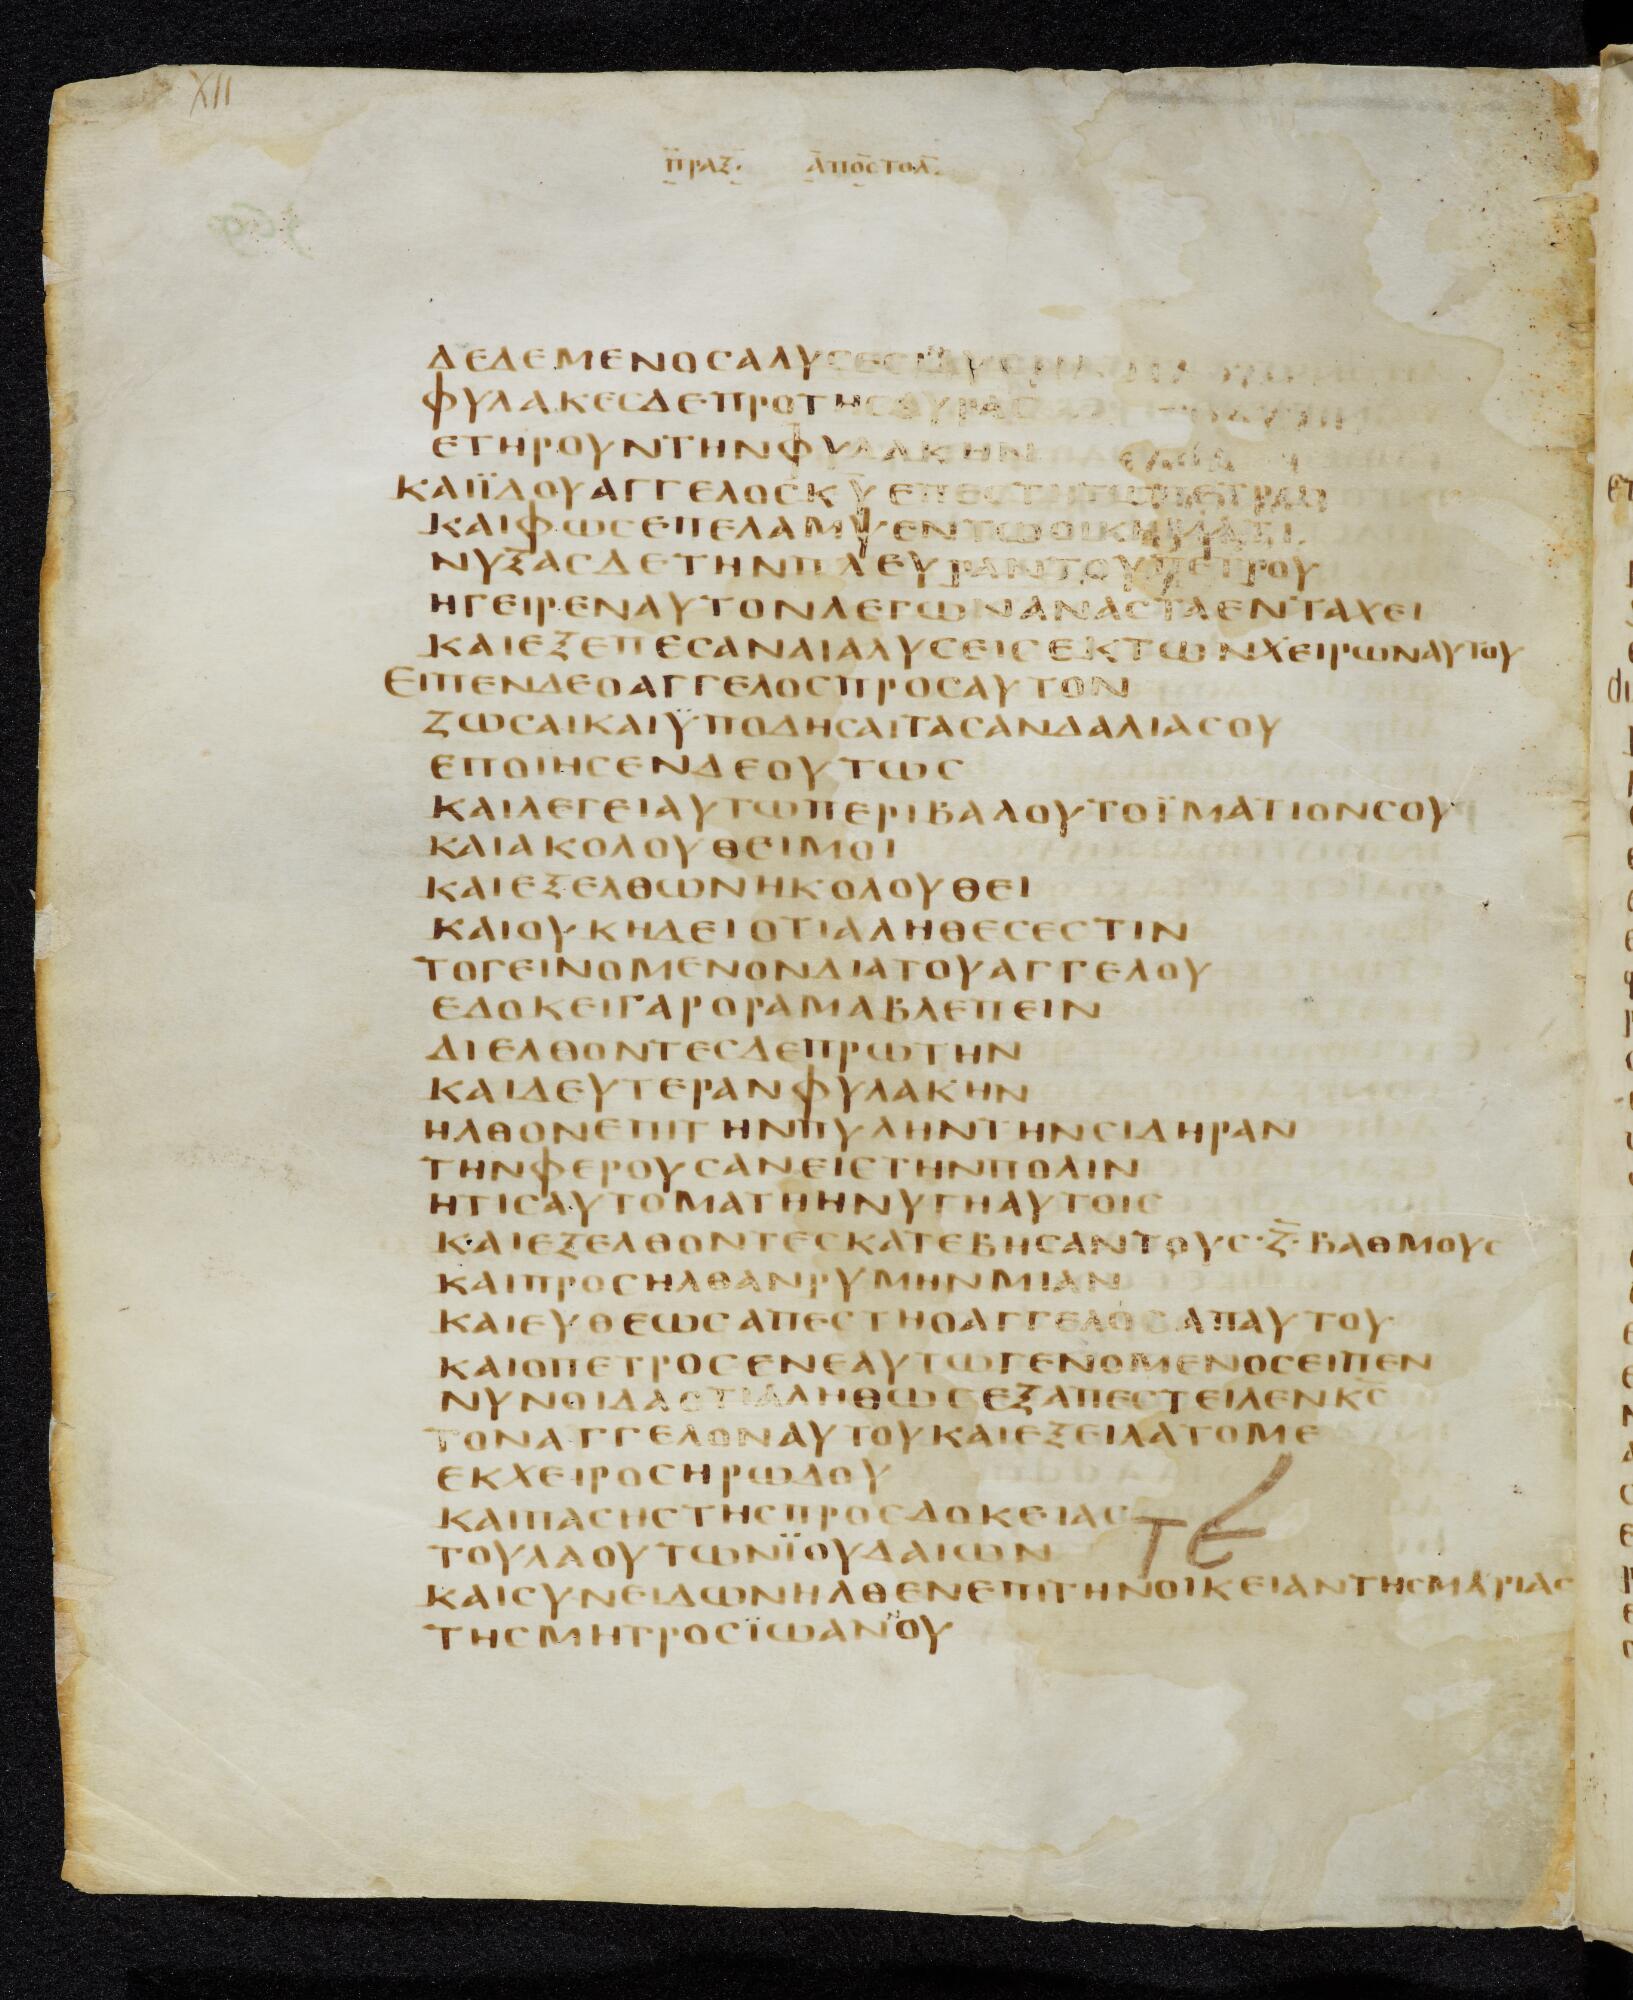 XII
ΠΡΑΞ· ΑΠΟCΤΟΛ·
ΔΕΔΕΜΕΝΟCΑΛΥCΕCΙ
ΦΥΛΑΚΕCΔΕΠΡΟΤΗCΘΥΡΑC
ΕΤΗΡΟΥΝΤΗΝΦΥΛΑΚΗΝ
ΚΑΙΪΔΟΥΑΓΓΕΛΟCΚΥ̅ΕΠΕCΤΗΤΩΠΕΤΡΩ
ΚΑΙΦΩCΕΠΕΛΑΜΨΕΝΤΩΟΙΚΗΜΑΤΙ
ΝΥΞΑCΔΕΤΗΝΠΛΕΥΡΑΝΤΟΥΠΕΤΡΟΥ
ΗΓΕΙΡΕΝΑΥΤΟΝΛΕΓΩΝΑΝΑCΤΑΕΝΤΑΧΕΙ
ΚΑΙΕΞΕΠΕCΑΝΑΙΑΛΥCΕΙCΕΚΤΩΝΧΕΙΡΩΝΑΥΤΟΥ
ΕΙΠΕΝΔΕΟΑΓΓΕΛΟCΠΡΟCΑΥΤΟΝ
ΖΩCΑΙΚΑΙΫΠΟΔΗCΑΙΤΑCΑΝΔΑΛΙΑCΟΥ
ΕΠΟΙΗCΕΝΔΕΟΥΤΩC
ΚΑΙΛΕΓΕΙΑΥΤΩΠΕΡΙΒΑΛΟΥΤΟΪΜΑΤΙΟΝCΟΥ
ΚΑΙΑΚΟΛΟΥΘΕΙΜΟΙ
ΚΑΙΕΞΕΛΘΩΝΗΚΟΛΟΥΘΕΙ
ΚΑΙΟΥΚΗΔΕΙΟΤΙΑΛΗΘΕCΕCΤΙΝ
ΤΟΓΕΙΝΟΜΕΝΟΝΔΙΑΤΟΥΑΓΓΕΛΟΥ
ΕΔΟΚΕΙΓΑΡΟΡΑΜΑΒΛΕΠΕΙΝ
ΔΙΕΛΘΟΝΤΕCΔΕΠΡΩΤΗΝ
ΚΑΙΔΕΥΤΕΡΑΝΦΥΛΑΚΗΝ
ΗΛΘΟΝΕΠΙΤΗΝΠΥΛΗΝΤΗΝCΙΔΗΡΑΝ
ΤΗΝΦΕΡΟΥCΑΝΕΙCΤΗΝΠΟΛΙΝ
ΗΤΙCΑΥΤΟΜΑΤΗΗΝΥΓΗΑΥΤΟΙC
ΚΑΙΕΞΕΛΘΟΝΤΕCΚΑΤΕΒΗCΑΝΤΟΥC·Ζ̅·ΒΑΘΜΟΥC
ΚΑΙΠΡΟCΗΛΘΑΝΡΥΜΗΝΜΙΑΝ
ΚΑΙΕΥΘΕΩCΑΠΕCΤΗΟΑΓΓΕΛΟCΑΠΑΥΤΟΥ
ΚΑΙΟΠΕΤΡΟCΕΝΕΑΥΤΩΓΕΝΟΜΕΝΟCΕΙΠΕΝ
ΝΥΝΟΙΔΑΟΤΙΑΛΗΘΩCΕΞΑΠΕCΤΕΙΛΕΝΚC̅
ΤΟΝΑΓΓΕΛΟΝΑΥΤΟΥΚΑΙΕΞΕΙΛΑΤΟΜΕ
ΕΚΧΕΙΡΟCΗΡΩΔΟΥ
ΚΑΙΠΑCΗCΤΗCΠΡΟCΔΟΚΕΙΑC
ΤΕ
ΤΟΥΛΑΟΥΤΩΝΪΟΥΔΑΙΩΝ
ΚΑΙCΥΝΕΙΔΩΝΗΛΘΕΝΕΠΙΤΗΝΟΙΚΕΙΑΝΤΗCΜΑΡΙΑC
ΤΗCΜΗΤΡΟCΪΩΑΝΟΥ